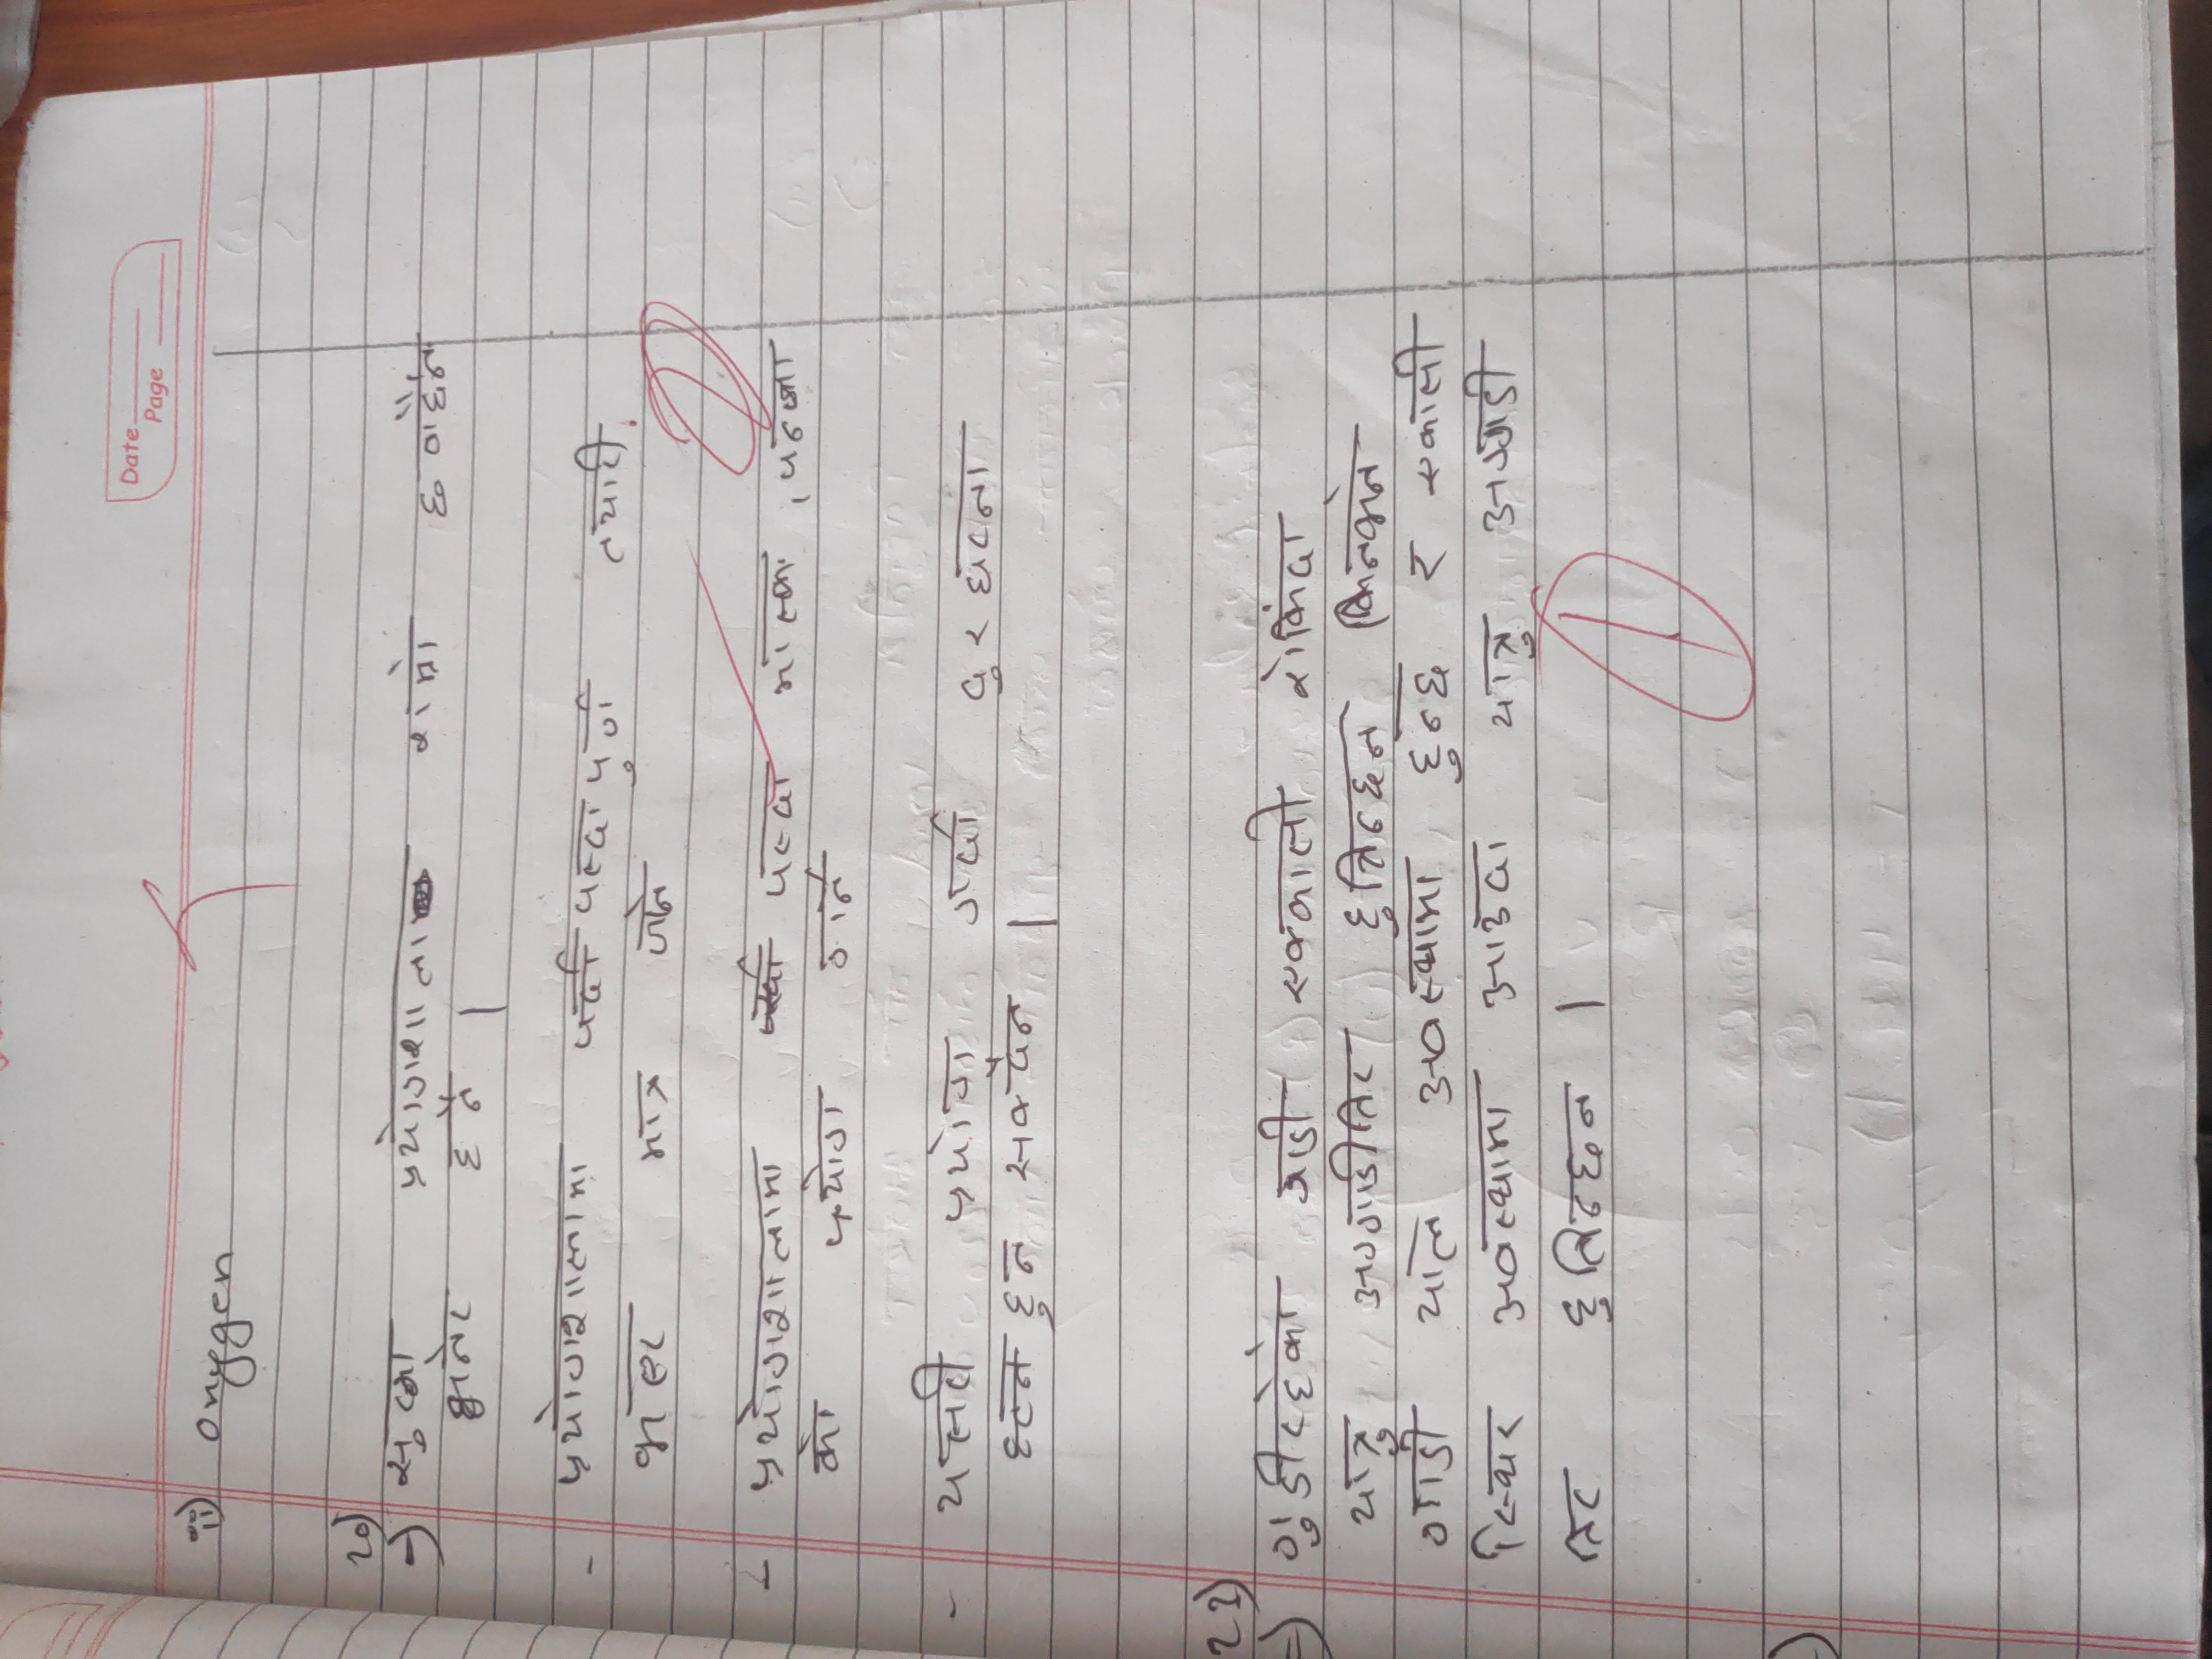 Date
Page
ii) onygen
20)
→ सुरक्षा प्रयोगशाला राम्रो छ गर्दैन
भनेर हुनै |
- प्रयोगशालामा पर्दा पस्दा पुर्ण तयारी
भएर मात्र जाने
- प्रयोगशालामा पस्दा मास्क, पन्जा
को प्रयोग गर्ने
- यसरी प्रयोग गर्दा दुरघटना
हुन सक्दैन |
21)
⇒ गुडीरहेको गाडी एक्कासी रोकिंदा
यात्रु अग्गाडीतिर हुत्तिन्छन किनभने
गाडी चाल अवस्थामा हुन्छ र एकासी
स्थिर अवस्थामा आउदा यात्रु अग्गाडी
तिर हुत्तिन्छन |